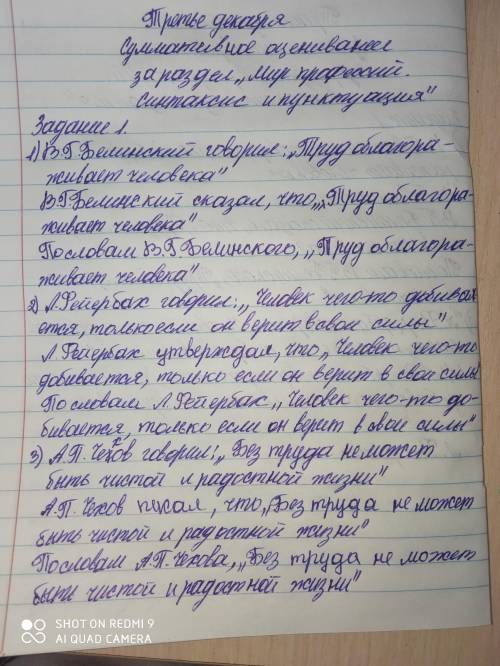 Третье декабря
Суммативное оценивание
за раздел „Мир профессий.
Синтаксис и пунктуация"
Задание 1.
1) В.Г.Белинский говорил: „Труд облагора-
живает человека"
В.Г.Белинский сказал, что „Труд облагора-
живает человека"
Пословам В.Г.Белинского, „Труд облагора-
живает человека"
2) Л.Фейербах говорил: „Человек чего-то добива
ется, только если он верит в свои силы"
Л.Фейербах утверждал, что „Человек чего-то
добивается, только если он верит в свои силы
Пословам Л.Фейербах „Человек чего-то до-
бивается, только если он верит в свои силы"
3) А.П.Чехов говорил: „Без труда не может
быть чистой и радостной жизни"
А.П.Чехов писал, что „Без труда не может
быть чистой и радостной жизни"
Пословам А.П.Чехова, „Без труда не может
быть чистой и радостной жизни"
SHOT ON REDMI 9
AI QUAD CAMERA